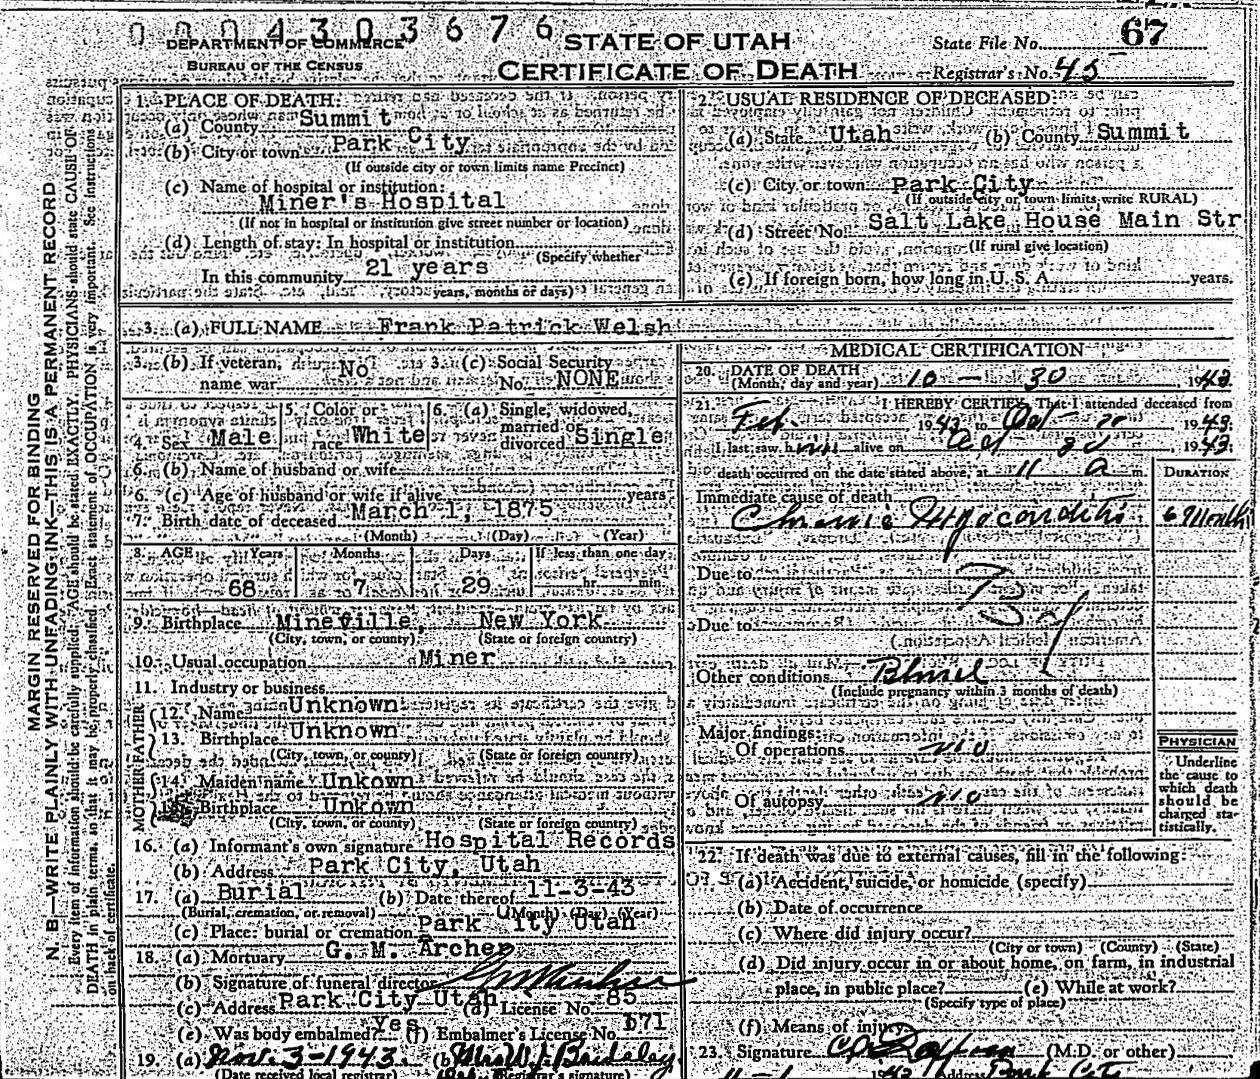 0004303676
DEPARTMENT OF COMMERCE
BUREAU OF THE CENSUS
STATE OF UTAH
CERTIFICATE OF DEATH
State File No. 67
Registrar's No. 45
MARGIN RESERVED FOR BINDING
N. B.—WRITE PLAINLY WITH UNFADING INK—THIS IS A PERMANENT RECORD
Every item of information should be carefully supplied. AGE should be stated EXACTLY. PHYSICIANS should state CAUSE OF
DEATH in plain terms, so that it may be properly classified. Exact statement of OCCUPATION is very important. See instructions
on back of certificate.
1. PLACE OF DEATH:
(a) County Summit
(b) City or town Park City
(If outside city or town limits name Precinct)
(c) Name of hospital or institution:
Miner's Hospital
(If not in hospital or institution give street number or location)
(d) Length of stay: In hospital or institution
(Specify whether
In this community 21 years
years, months or days)
2. USUAL RESIDENCE OF DECEASED:
(a) State Utah (b) County Summit
(c) City or town Park City
(If outside city or town limits write RURAL)
(d) Street No. Salt Lake House Main Str
(If rural give location)
(e) If foreign born, how long in U. S. A. years.
3. (a) FULL NAME Frank Patrick Welsh
3. (b) If veteran, name war No
3. (c) Social Security No. NONE
4. Sex Male
5. Color or race White
6. (a) Single, widowed, married or divorced Single
6. (b) Name of husband or wife
6. (c) Age of husband or wife if alive years
7. Birth date of deceased March 1, 1875
(Month) (Day) (Year)
8. AGE Years Months Days If less than one day
68 7 29 hr. min.
9. Birthplace Mineville, New York
(City, town, or county) (State or foreign country)
10. Usual occupation Miner
11. Industry or business
FATHER
12. Name Unknown
13. Birthplace Unknown
(City, town, or county) (State or foreign country)
MOTHER
14. Maiden name Unkown
15. Birthplace Unkown
(City, town, or county) (State or foreign country)
16. (a) Informant's own signature Hospital Records
(b) Address Park City, Utah
17. (a) Burial (b) Date thereof 11-3-43
(Burial, cremation, or removal) (Month) (Day) (Year)
(c) Place: burial or cremation Park City Utah
18. (a) Mortuary G. M. Archer
(b) Signature of funeral director GM Archer
(c) Address Park City Utah (d) License No. 85
(e) Was body embalmed? Yes (f) Embalmer's License No. 571
19. (a) Nov. 3-1943. (b) Mrs W. J. Bardsley
(Date received local registrar) (Registrar's signature)
MEDICAL CERTIFICATION
20. DATE OF DEATH
(Month, day and year) 10 — 30, 1943
21. I HEREBY CERTIFY, That I attended deceased from
Feb. 1943, to Oct 1943.
I last saw him alive on Oct 30, 1943.
death occurred on the date stated above, at 11 a m.
DURATION
Immediate cause of death
Chronic Myocarditis 6 Months
Due to
Due to
Other conditions
(Include pregnancy within 3 months of death)
Major findings:
Of operations no
Of autopsy no
PHYSICIAN
Underline
the cause to
which death
should be
charged sta-
tistically.
22. If death was due to external causes, fill in the following:
(a) Accident, suicide, or homicide (specify)
(b) Date of occurrence
(c) Where did injury occur?
(City or town) (County) (State)
(d) Did injury occur in or about home, on farm, in industrial
place, in public place? (e) While at work?
(Specify type of place)
(f) Means of injury
23. Signature (M.D. or other)
1943 Address Park City